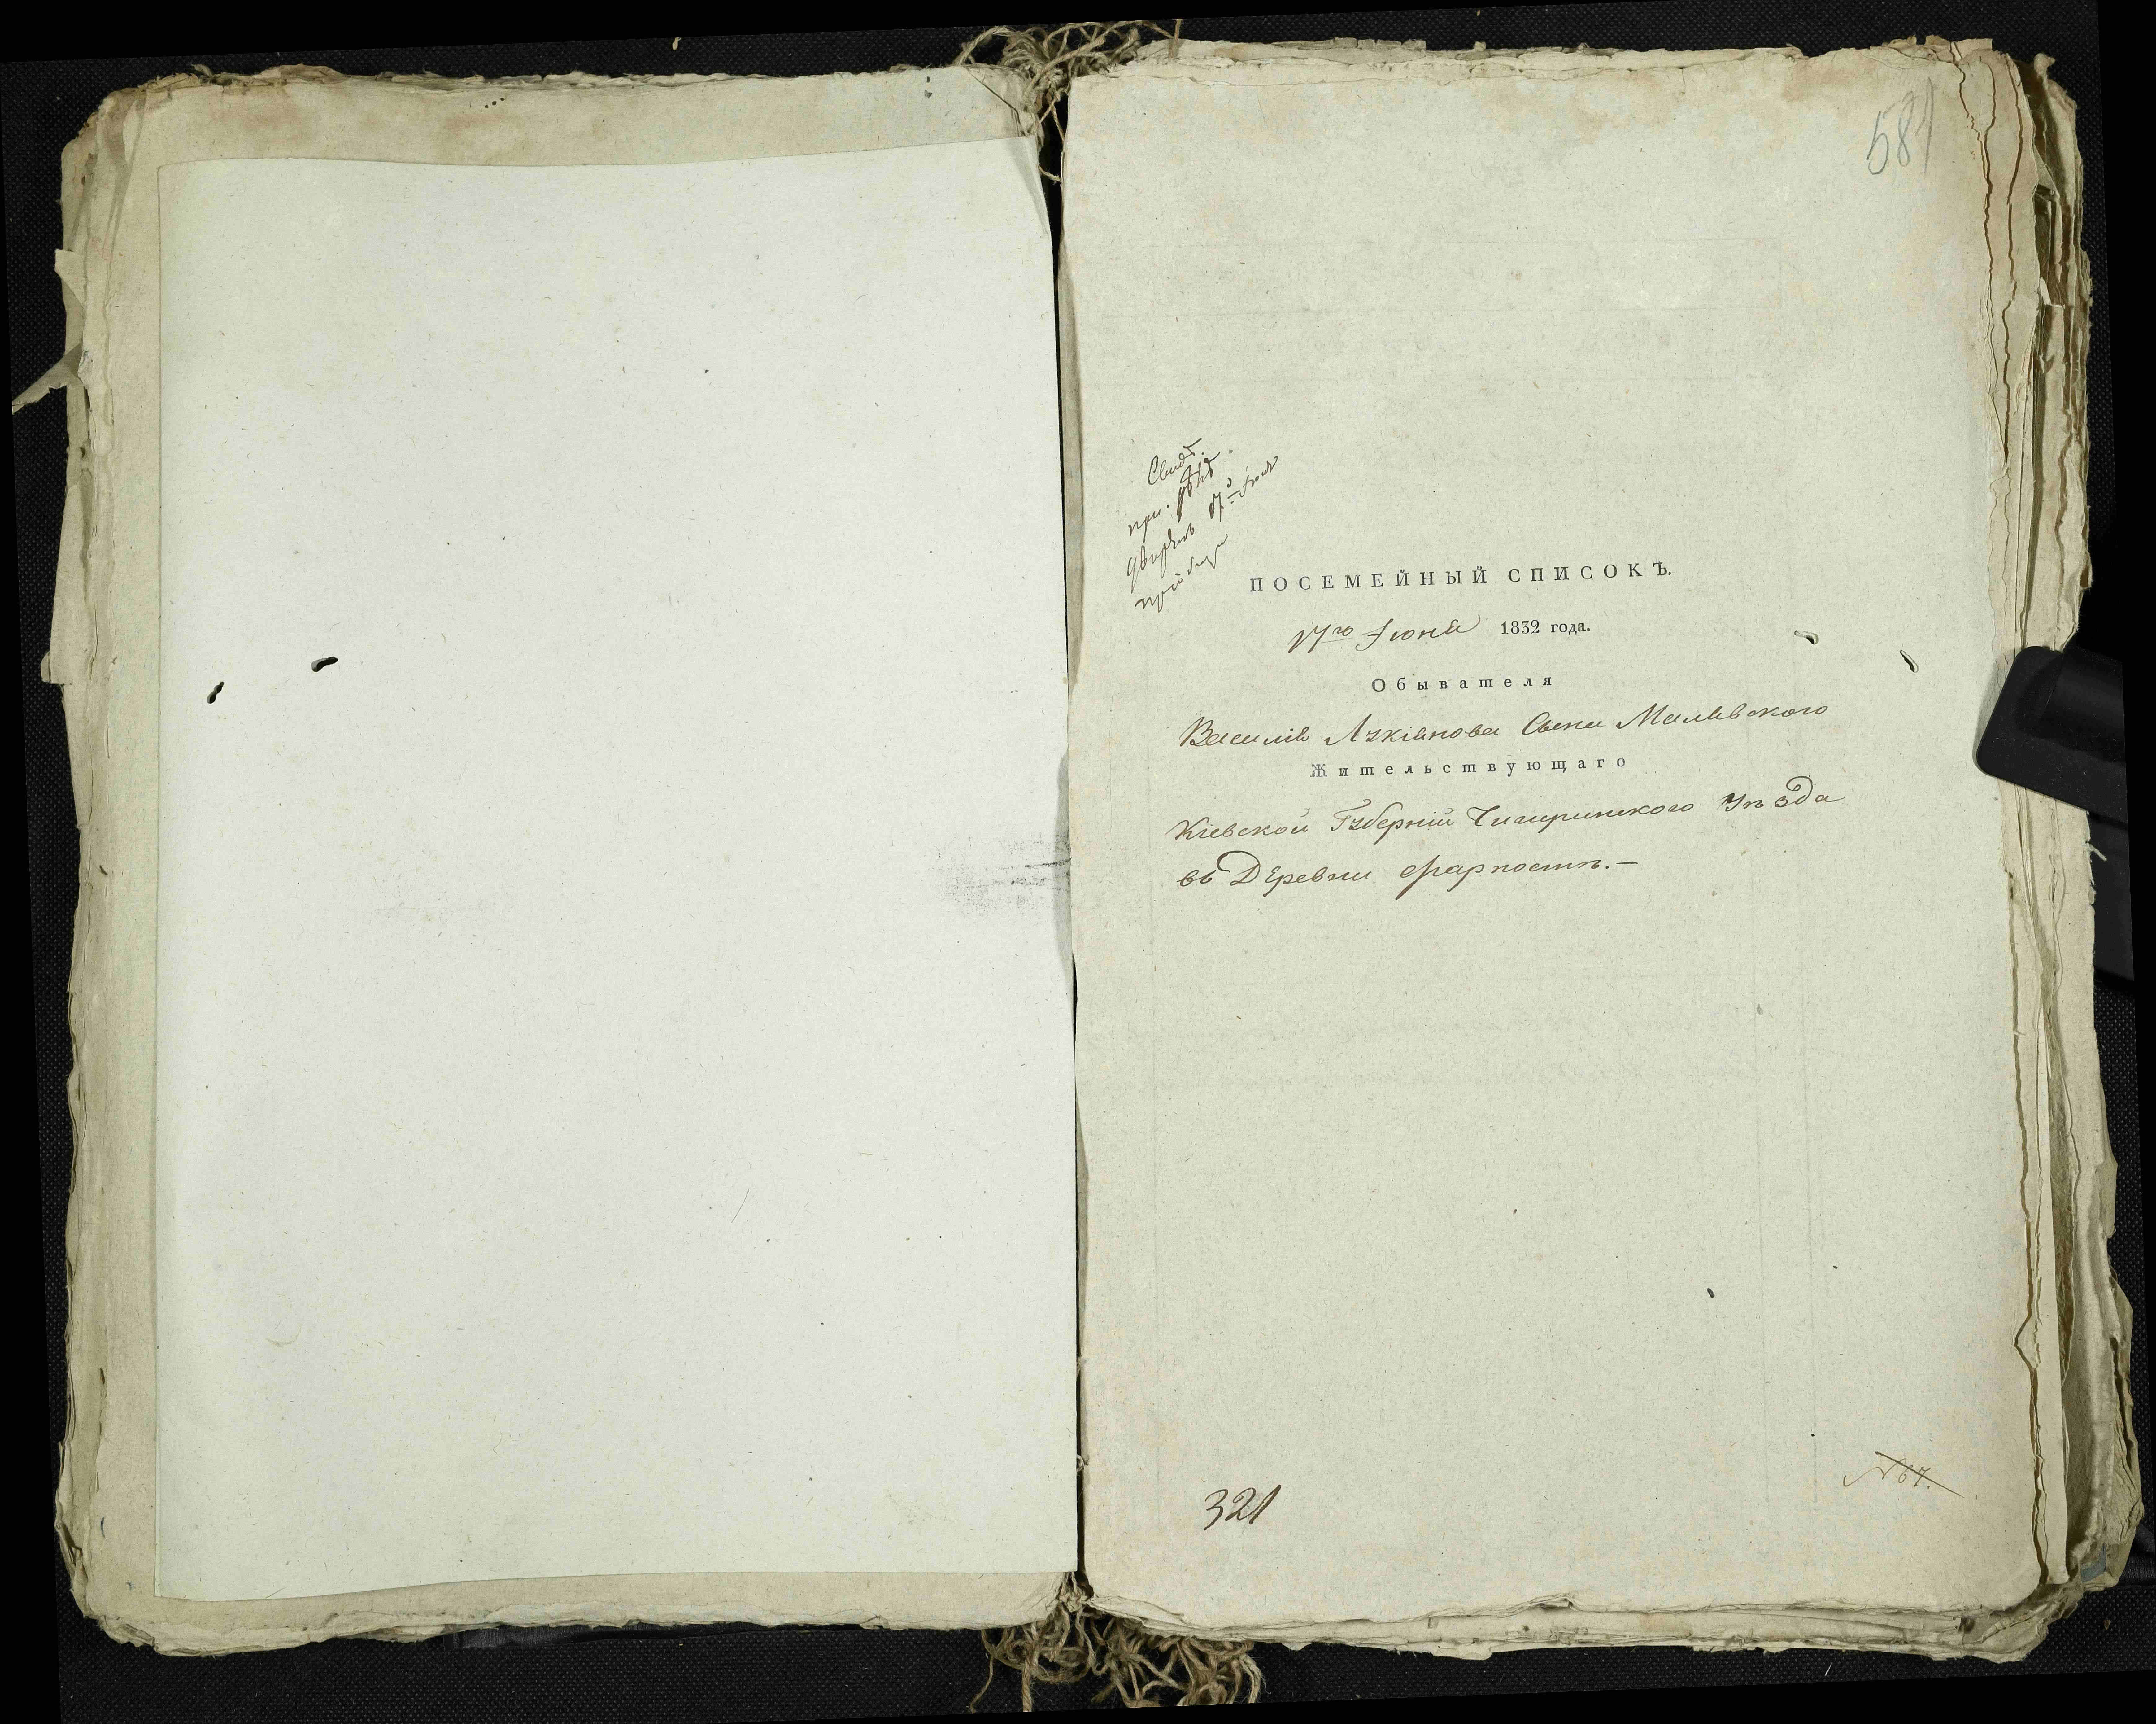 581
Свид.
при.
дворян 17го Июня
ПОСЕМЕЙНЫЙ СПИСОКЪ.
17го Іюня 1832 года.
Обывателя
Василія Лукіянова Сына Малѣвского
Жительствующаго
Кіевской Губерніи Чигиринского Уѣзда
въ Деревни Фарпостѣ.—
№ 67.
321